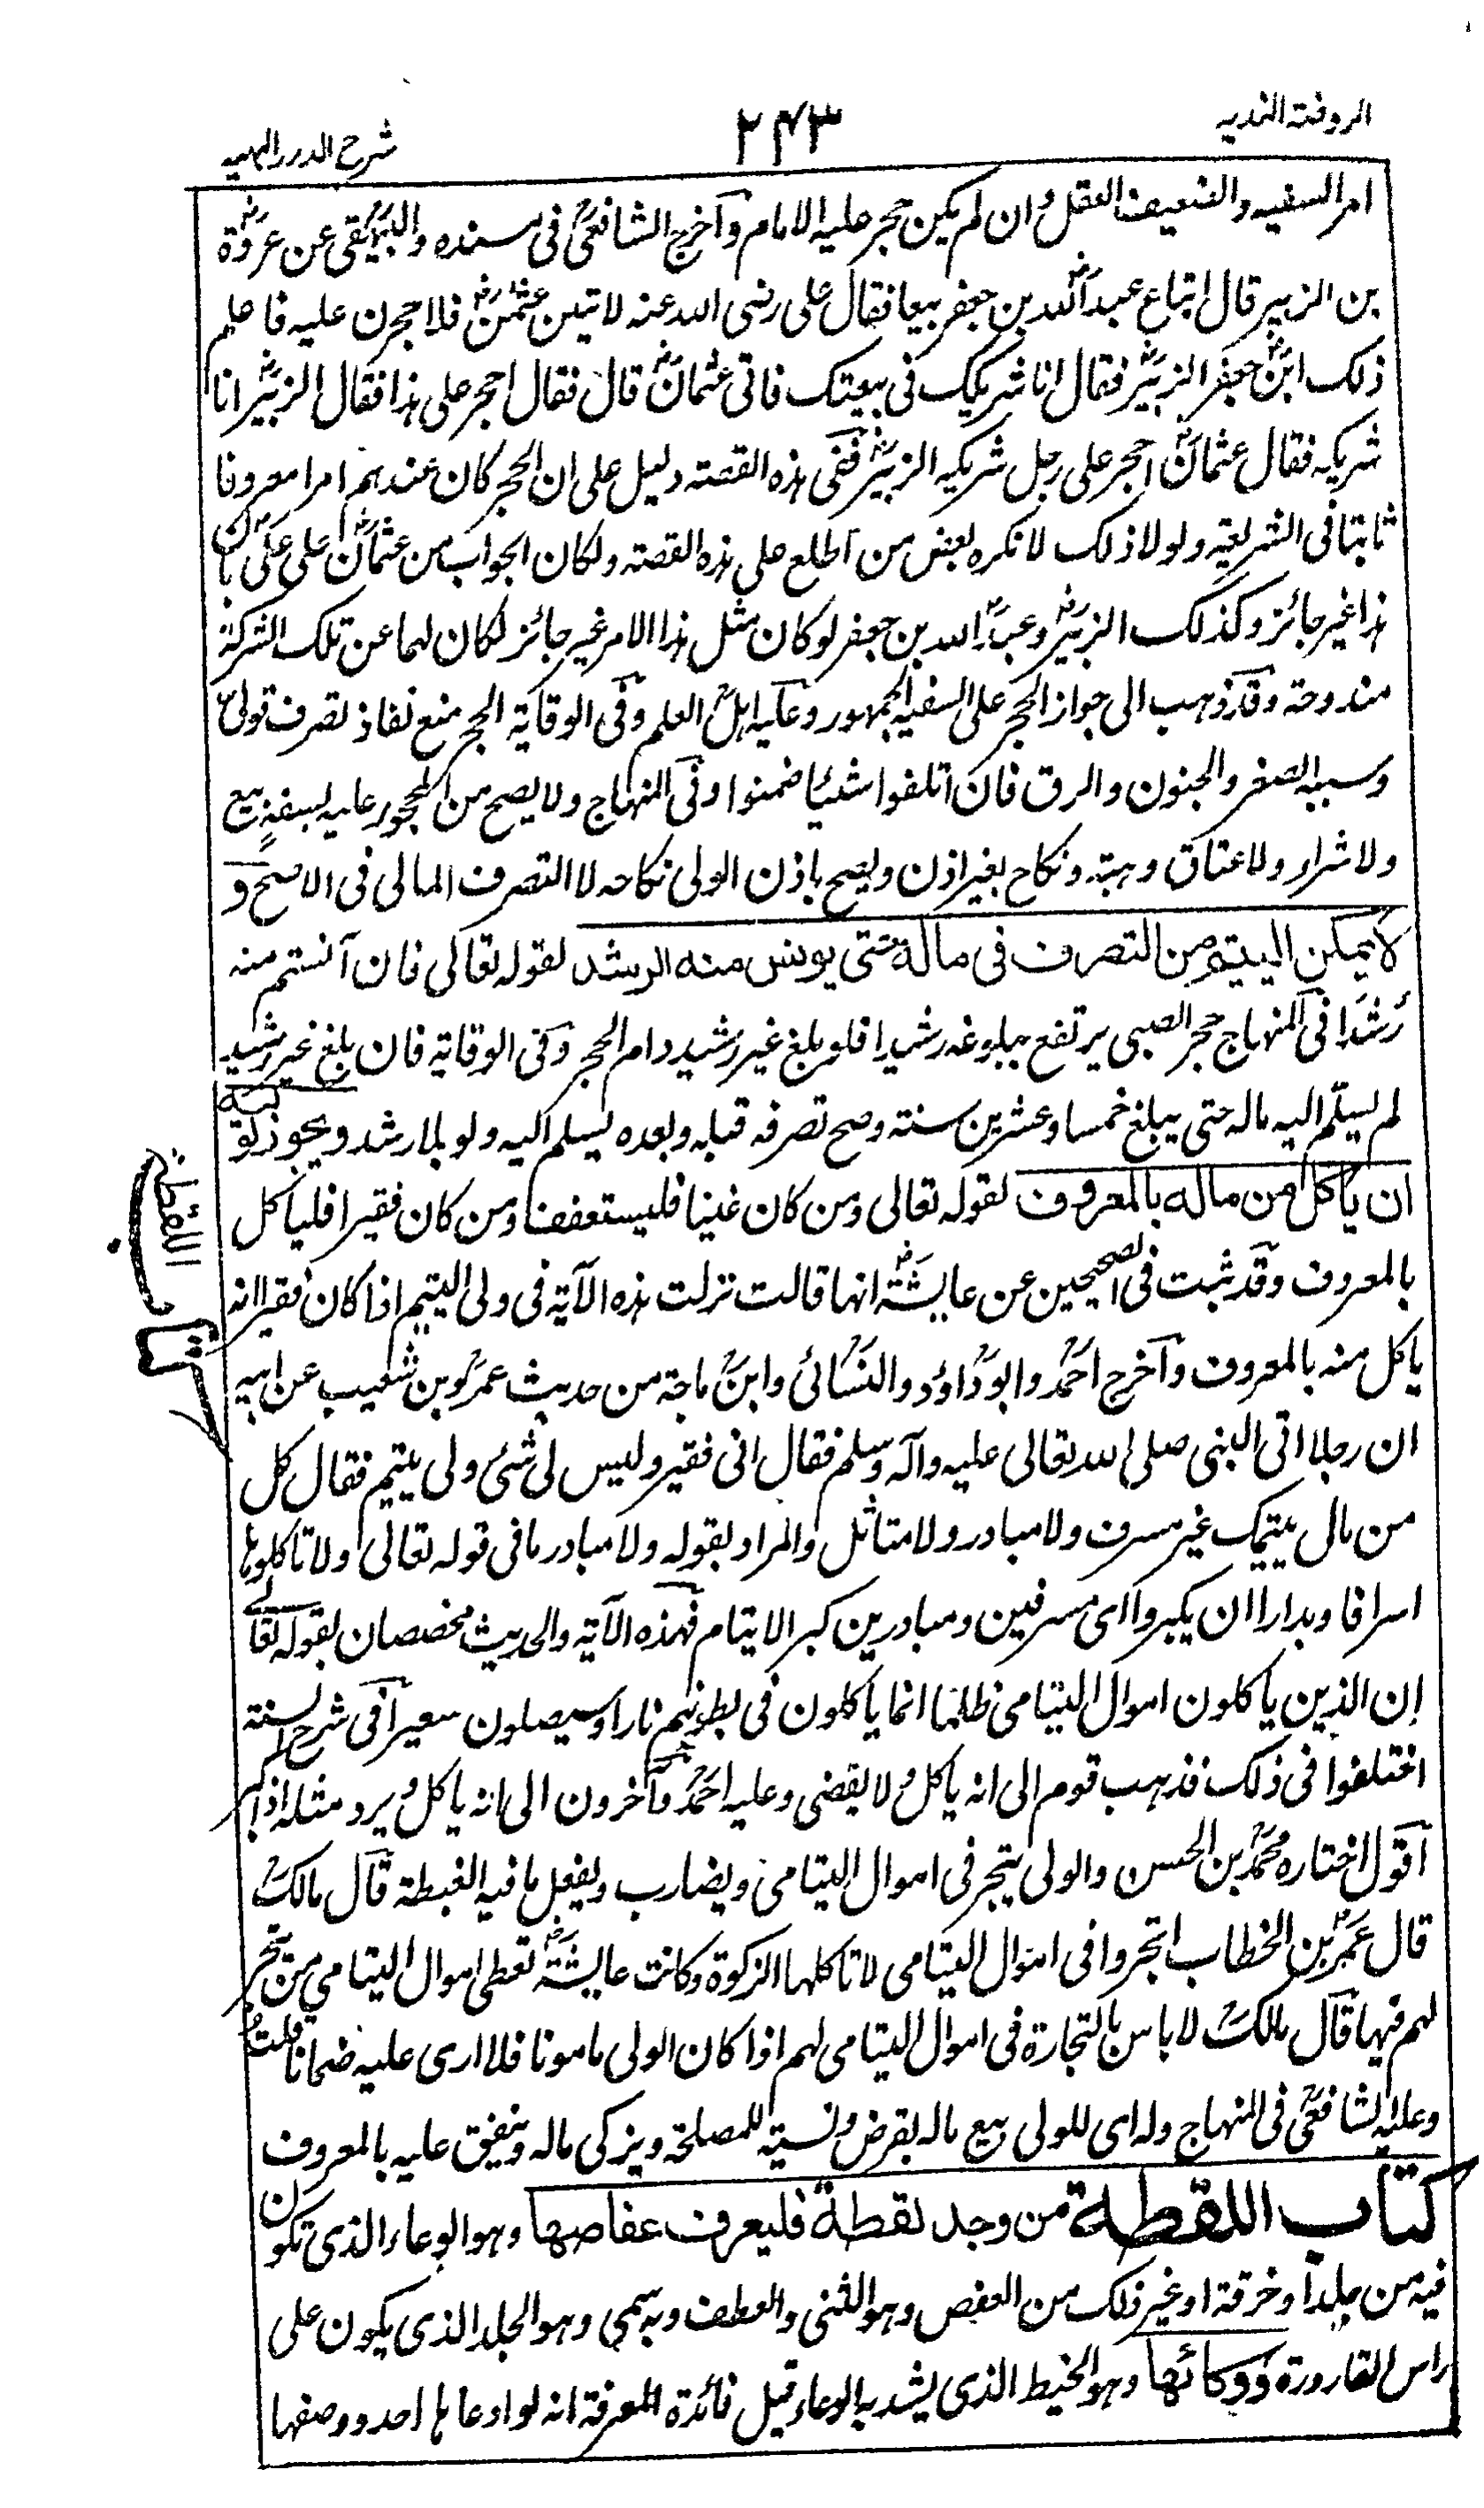 الروضة الندية
٢٤٣
شرح الدرر البهية
امر السفيه والضعيف العقل وان لم يكن حجر عليه الامام وآخرج الشافعي فى مسنده والبيهقى عن عروة
بن الزبير قال ابتاع عبد الله بن جعفر بيعا فقال على رضى الله عنه لاتين عثمن فلاحجرن عليه فاعلم
ذلك ابن جعفر الزبير فقال انا شريكك فى بيعتك فاتى عثمان قال فقال احجر على هذا فقال الزبير انا
شريكه فقال عثمان احجر على رجل شريكه الزبير ففى هذه القصة دليل على ان الحجر كان عندهم امرا معروفا
ثابتا فى الشريعة ولولا ذلك لانكره بعض من اطلع على هذه القصة ولكان الجواب من عثمان على على بان
هذا غير جائز وكذلك الزبير وعبد الله بن جعفر لو كان مثل هذا الامر غير جائز لكان لهما عن تلك الشركة
مندوحة وقد ذهب الى جواز الحجر على السفيه الجمهور وعليه اهل العلم وفى الوقاية الحجر منع نفاذ تصرف قولى
وسببه الصغر والجنون والرق فان اتلفوا شيئا ضمنوا وفى المنهاج ولا يصح من المحجور عليه لسفه بيع
ولا شراء ولا عتاق وهبة ونكاح بغير اذن ويصح باذن الولى نكاحه لا التصرف المالى فى الاصح و
لا يمكن اليتيم من التصرف فى ماله حتى يونس منه الرشد لقوله تعالى فان آنستم منهم
رشدا فى المنهاج حجر الصبى يرتفع ببلوغه رشيدا فلو بلغ غير رشيد دام الحجر وفى الوقاية فان بلغ غير رشيد
لم يسلم اليه ماله حتى يبلغ خمسا وعشرين سنة وصح تصرفه قبله وبعده يسلم اليه ولو بلا رشد ويجوز لوليه
ان ياكل من ماله بالمعروف لقوله تعالى ومن كان غنيا فليستعفف ومن كان فقيرا فلياكل
بالمعروف وقد ثبت فى الصحيحين عن عايشة انها قالت نزلت هذه الآية فى ولى اليتيم اذا كان فقيرا انه
ياكل منه بالمعروف وآخرج احمد وابوداؤد والنسائى وابن ماجة من حديث عمرو بن شعيب عن ابيه
ان رجلا اتى النبى صلى الله تعالى عليه وآله وسلم فقال انى فقير وليس لى شئ ولى يتيم فقال كل
من مال يتيمك غير مسرف ولا مبادر ولا متاثل والمراد بقوله ولا مبادر ما فى قوله تعالى ولا تاكلوها
اسرافا وبدارا ان يكبروا اى مسرفين ومبادرين كبر الايتام فهذه الآية والحديث مخصصان لقوله تعالى
إن الذين ياكلون اموال اليتامى ظلما انما ياكلون فى بطونهم نارا وسيصلون سعيرا فى شرح السنة
اختلفوا فى ذلك فذهب قوم الى انه ياكل ولا يقضى وعليه احمد وآخرون الى انه ياكل ويرد مثله اذا ايسر
آقول اختاره محمد بن الحسن والولى يتجر فى اموال اليتامى ويضارب ويفعل ما فيه الغبطة قال مالك
قال عمر بن الخطاب اتجروا فى اموال اليتامى لا تاكلها الزكوة وكانت عايشة تعطى اموال اليتامى من يتجر
لهم فيها قال مالك لا باس بالتجارة فى اموال اليتامى لهم اذا كان الولى مامونا فلا ارى عليه ضمانا قلت
وعليه الشافعى فى المنهاج وله اى للولى بيع ماله بقرض ونسية للمصلحة ويزكى ماله وينفق عليه بالمعروف
كتاب اللقطة من وجد لقطة فليعرف عفاصها وهو الوعاء الذى تكون
فيه من جلد او خرقة او غير ذلك من العفص وهو الثنى والعطف وبه سمى وهو الجلد الذى يكون على
راس القارورة ووكائها وهو الخيط الذى يشد به الوعاء قيل فائدة المعرفة انه لو ادعاها احد ووصفها